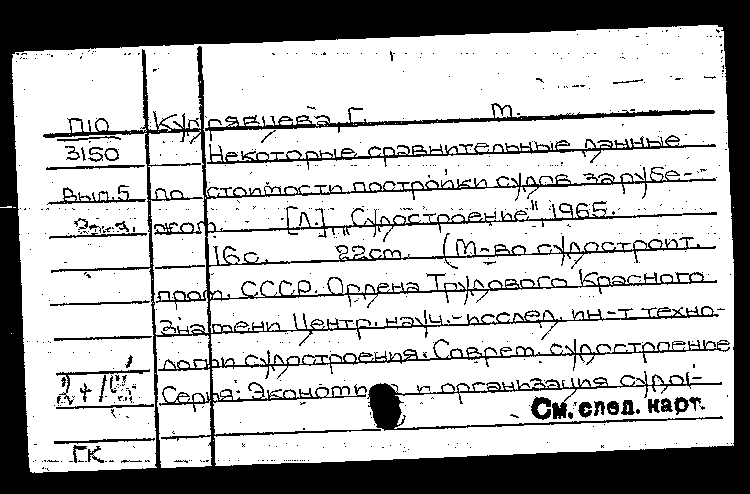 П10 Кудрявцева, Г. М.
3150 Некоторые сравнительные данные
Вып.5 по стоимости постройки судов за рубе-
жом. [Л.], „Судостроение", 1965.
16 с. 22 см. (М-во судостроит.
пром. СССР. Ордена Трудового Красного
Знамени Центр. науч.-исслед. ин-т техно-
логии судостроения. Соврем. судостроение.
Серия: Экономика и организация судо-
См. след. карт.
ГК